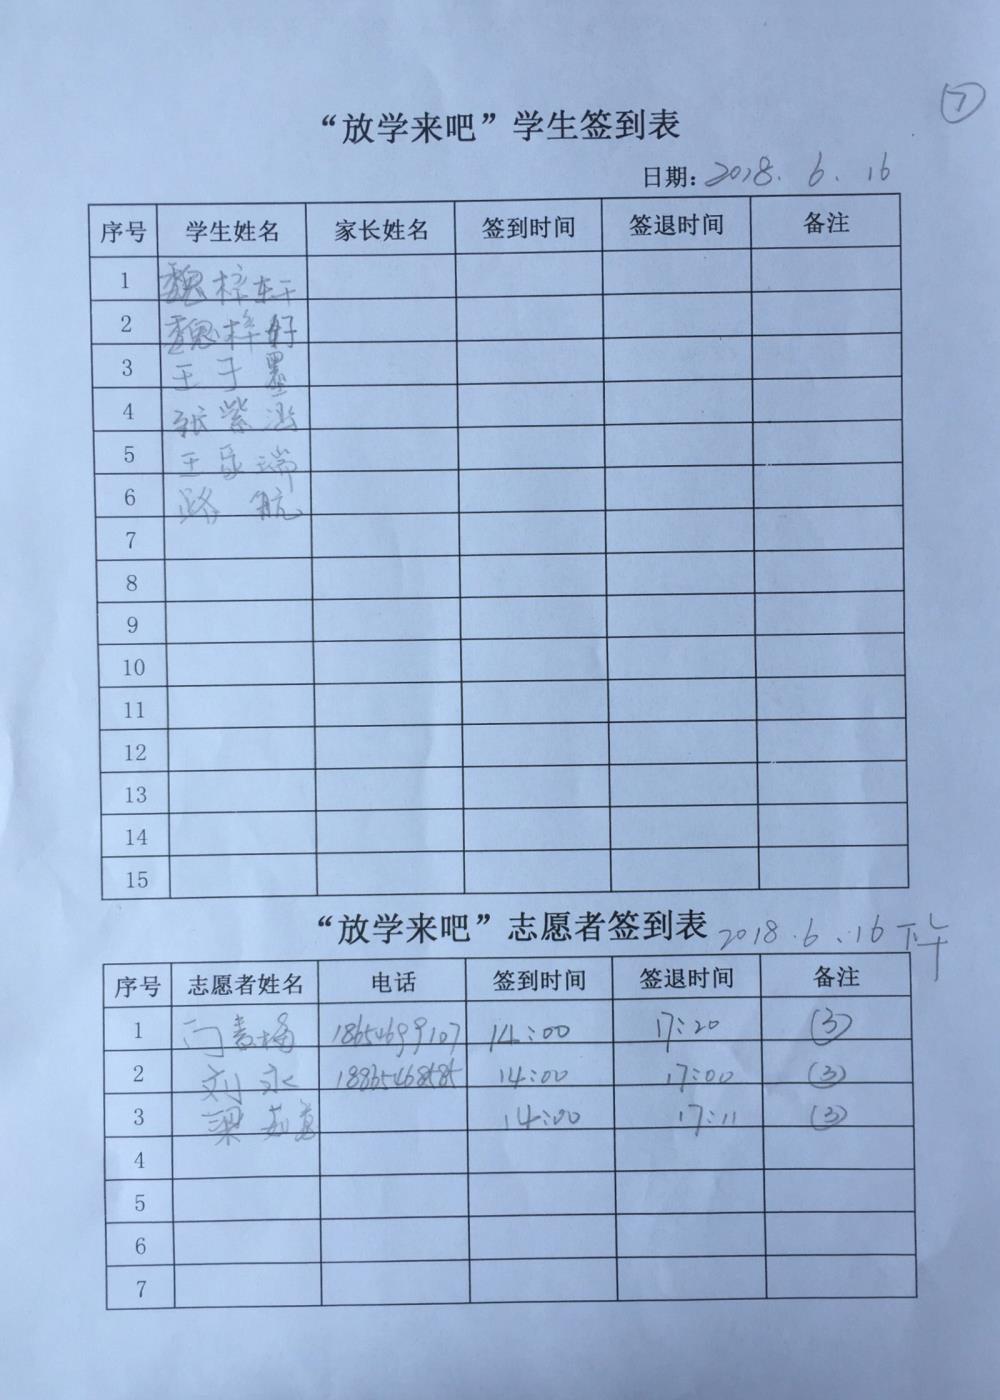 7
“放学来吧”学生签到表
日期: 2018. 6. 16
序号 学生姓名 家长姓名 签到时间 签退时间 备注
1 魏梓轩
2 魏梓好
3 王子墨
4 张紫涵
5 王 瑞
6 路航
7
8
9
10
11
12
13
14
15
“放学来吧”志愿者签到表 2018.6.16 下午
序号 志愿者姓名 电话 签到时间 签退时间 备注
1 门 梅 18654699107 14:00 17:20 (3)
2 刘永 14:00 17:00 (3)
3 梁 14:00 17:11 (3)
4
5
6
7